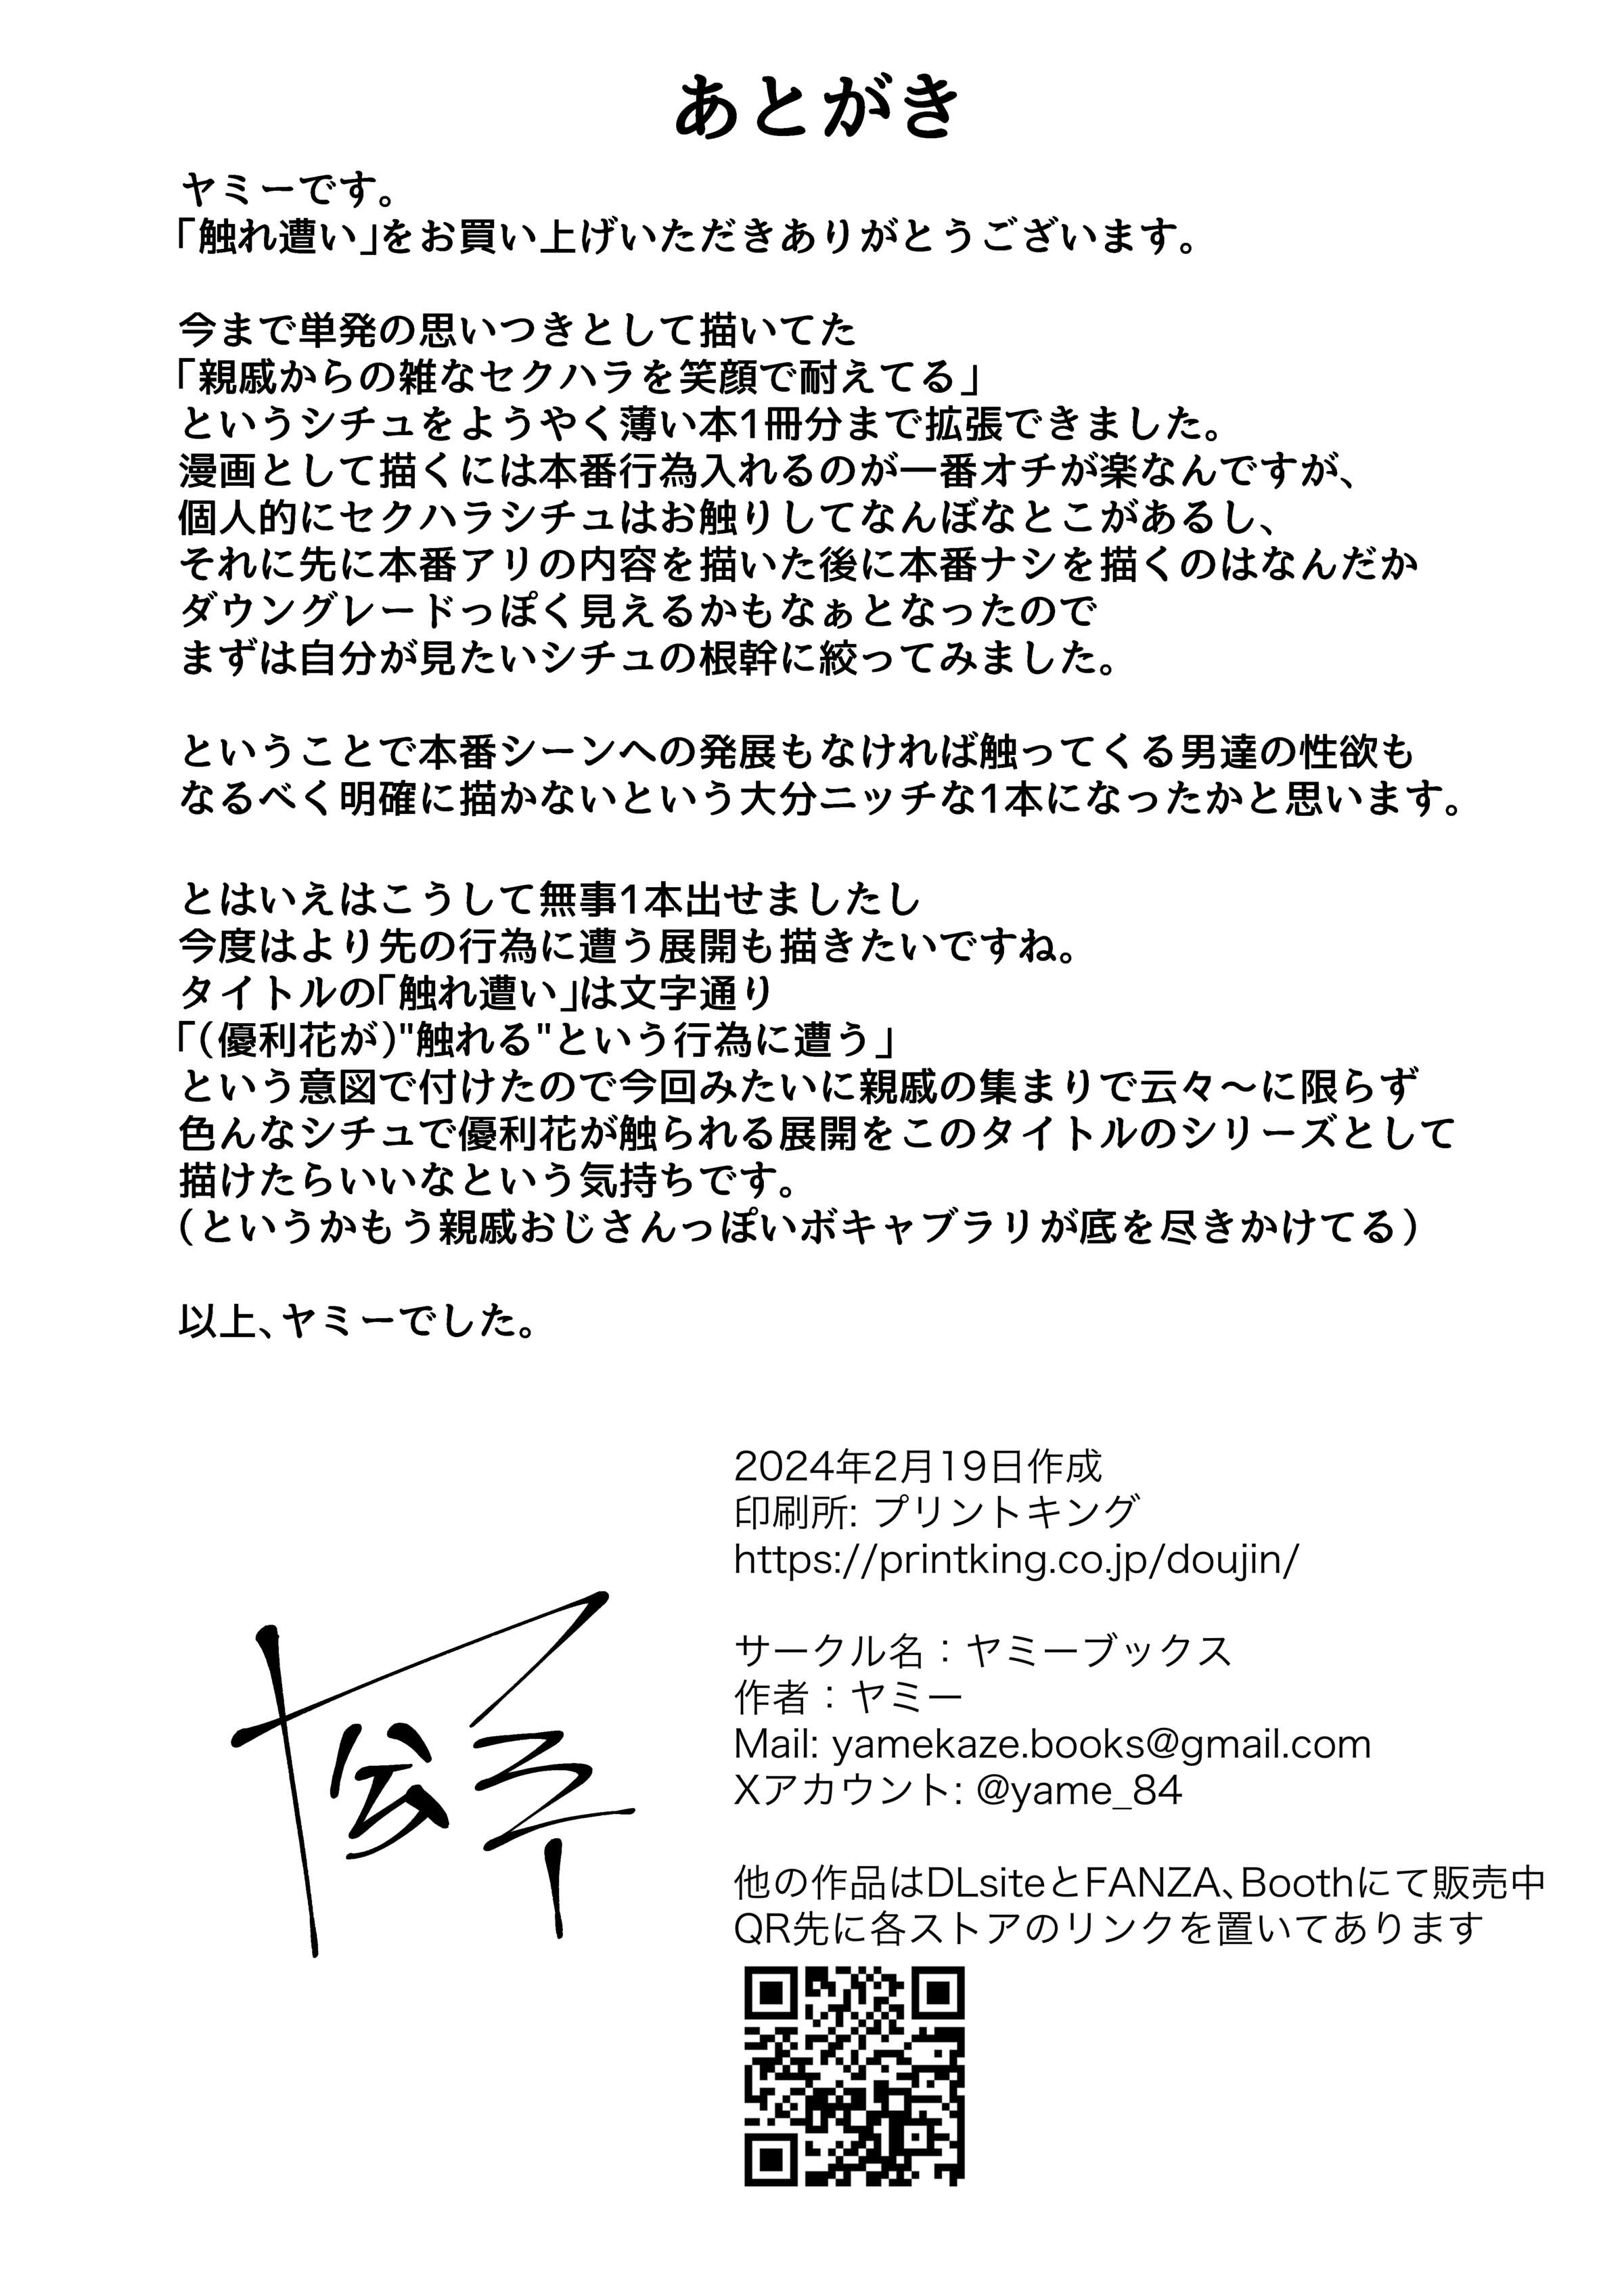 あとがき
ヤミーです。
「触れ遭い」をお買い上げいただきありがとうございます。
今まで単発の思いつきとして描いてた
「親戚からの雑なセクハラを笑顔で耐えてる」
というシチュをようやく薄い本1冊分まで拡張できました。
漫画として描くには本番行為入れるのが一番オチが楽なんですが、
個人的にセクハラシチュはお触りしてなんぼなとこがあるし、
それに先に本番アリの内容を描いた後に本番ナシを描くのはなんだか
ダウングレードっぽく見えるかもなぁとなったので
まずは自分が見たいシチュの根幹に絞ってみました。
ということで本番シーンへの発展もなければ触ってくる男達の性欲も
なるべく明確に描かないという大分ニッチな1本になったかと思います。
とはいえはこうして無事1本出せましたし
今度はより先の行為に遭う展開も描きたいですね。
タイトルの「触れ遭い」は文字通り
「(優利花が)"触れる"という行為に遭う」
という意図で付けたので今回みたいに親戚の集まりで云々〜に限らず
色んなシチュで優利花が触られる展開をこのタイトルのシリーズとして
描けたらいいなという気持ちです。
(というかもう親戚おじさんっぽいボキャブラリが底を尽きかけてる)
以上、ヤミーでした。
2024年2月19日作成
印刷所: プリントキング
https://printking.co.jp/doujin/
サークル名：ヤミーブックス
作者：ヤミー
Mail: yamekaze.books@gmail.com
Xアカウント: @yame_84
他の作品はDLsiteとFANZA、Boothにて販売中
QR先に各ストアのリンクを置いてあります